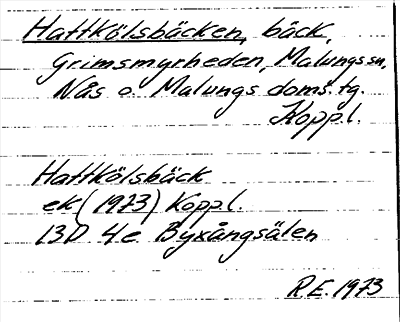 Hattkölsbäcken, bäck,
Grimsmyrheden, Malungs sn,
Nås o. Malungs doms. tg.
Kopp.l.
Hattkölsbäck
ek (1973) Kopp.l.
13D 4e Byxångsälen
R.E. 1973